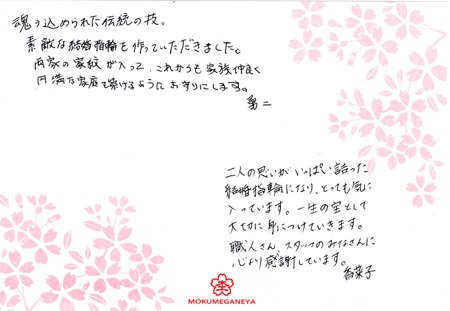 魂の込められた伝統の技。
素敵な結婚指輪を作っていただきました。
両家の家紋が入って、これからも家族仲良く
円満な家庭を築けるようにお守りにします。
二人の思いがいっぱい詰った
結婚指輪になり、とっても気に
入っています。一生の宝として
大切に身につけていきます。
職人さん、スタッフのみなさんに
心より感謝しています。
香菜子
MOKUMEGANEYA